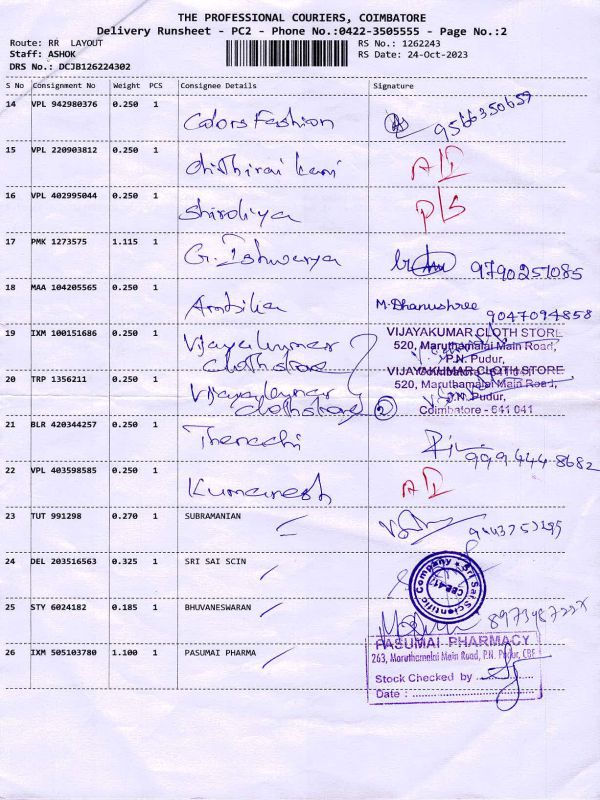 THE PROFESSIONAL COURIERS, COIMBATORE
Delivery Runsheet - PC2 - Phone No.:0422-3505555 - Page No.:2
Route: RR LAYOUT RS No.: 1262243
Staff: ASHOK RS Date: 24-Oct-2023
DRS No.: DCJB126224302
S No Consignment No Weight PCS Consignee Details Signature
14 VPL 942980376 0.250 1 Colors Fashion 9566350659
15 VPL 220903812 0.250 1 Chithirai Kani A/I
16 VPL 402995044 0.250 1 Shirdiya P/S
17 PMK 1273575 1.115 1 G. Ishwarya 9790251085
18 MAA 104205565 0.250 1 Ambika M. Dhanushree 9047094858
19 IXM 100151686 0.250 1 Vijayakumar Cloth store
VIJAYAKUMAR CLOTH STORE
520, Maruthamalai Main Road,
P.N. Pudur,
20 TRP 1356211 0.250 1 Vijayakumar Cloth store 2
VIJAYAKUMAR CLOTH STORE
520, Maruthamalai Main Road,
P.N. Pudur,
Coimbatore - 641 041
21 BLR 420344257 0.250 1 9994448682
22 VPL 403598585 0.250 1 Kumaresh A/I
23 TUT 991298 0.270 1 SUBRAMANIAN
24 DEL 203516563 0.325 1 SRI SAI SCIN
Sri Sai Scientific Company
25 STY 6024182 0.185 1 BHUVANESWARAN
26 IXM 505103780 1.100 1 PASUMAI PHARMA
PASUMAI PHARMACY
263, Maruthamalai Main Road, P.N. Pudur, CBE
Stock Checked by
Date :